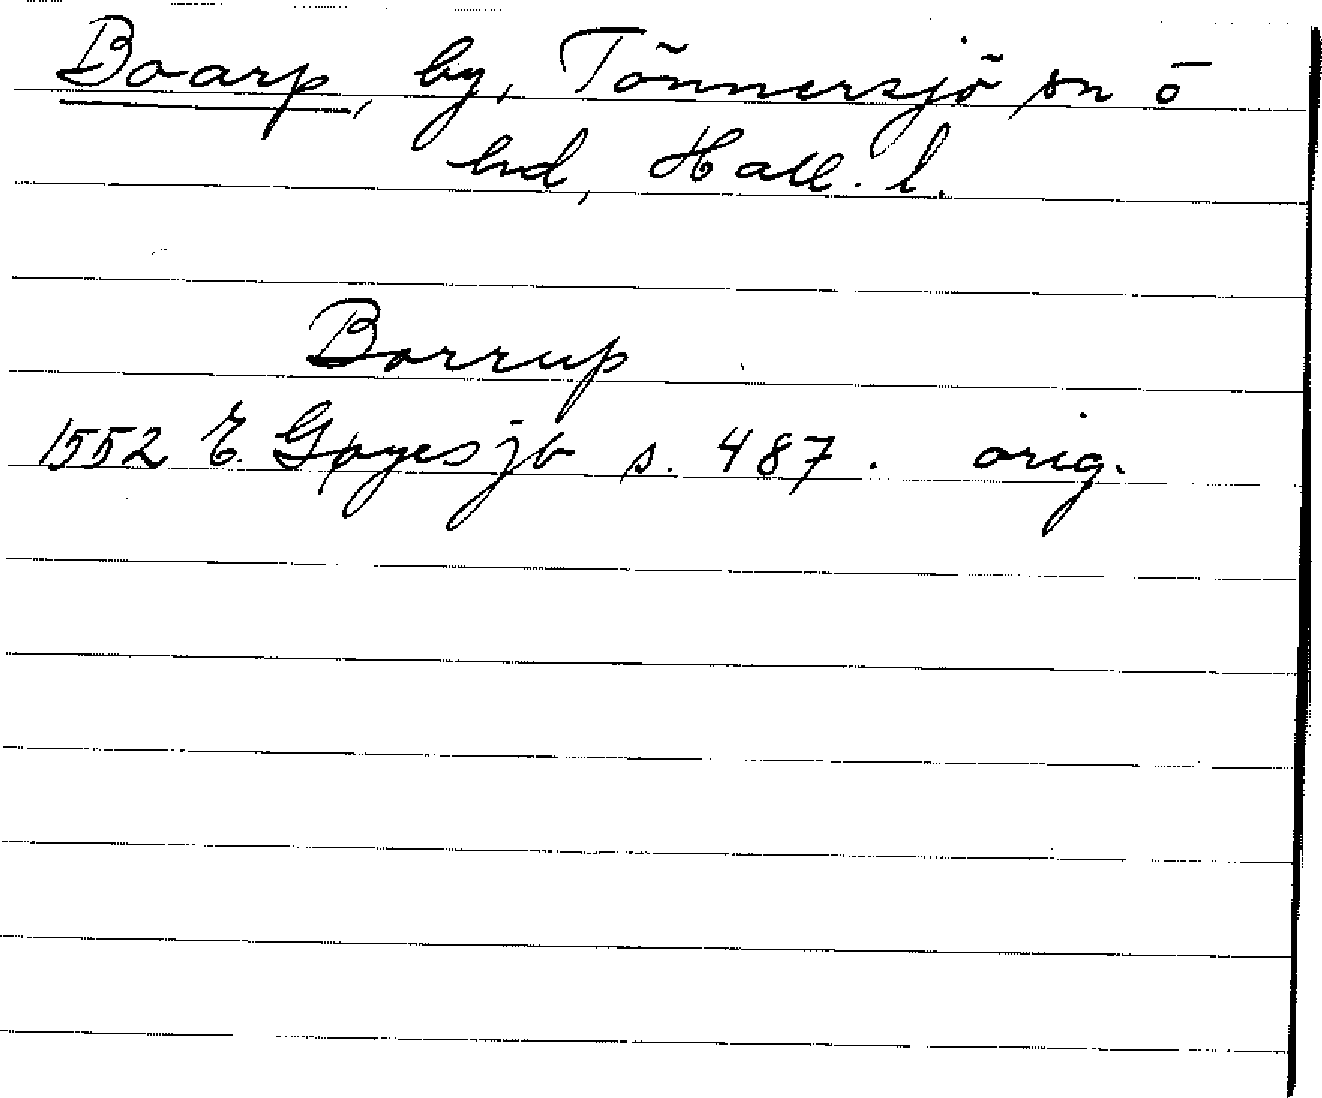 Boarp, by, Tönnersjö sn o
hd, Hall. l.
Borrup
1552 E. Gøyes jb s. 487. orig.